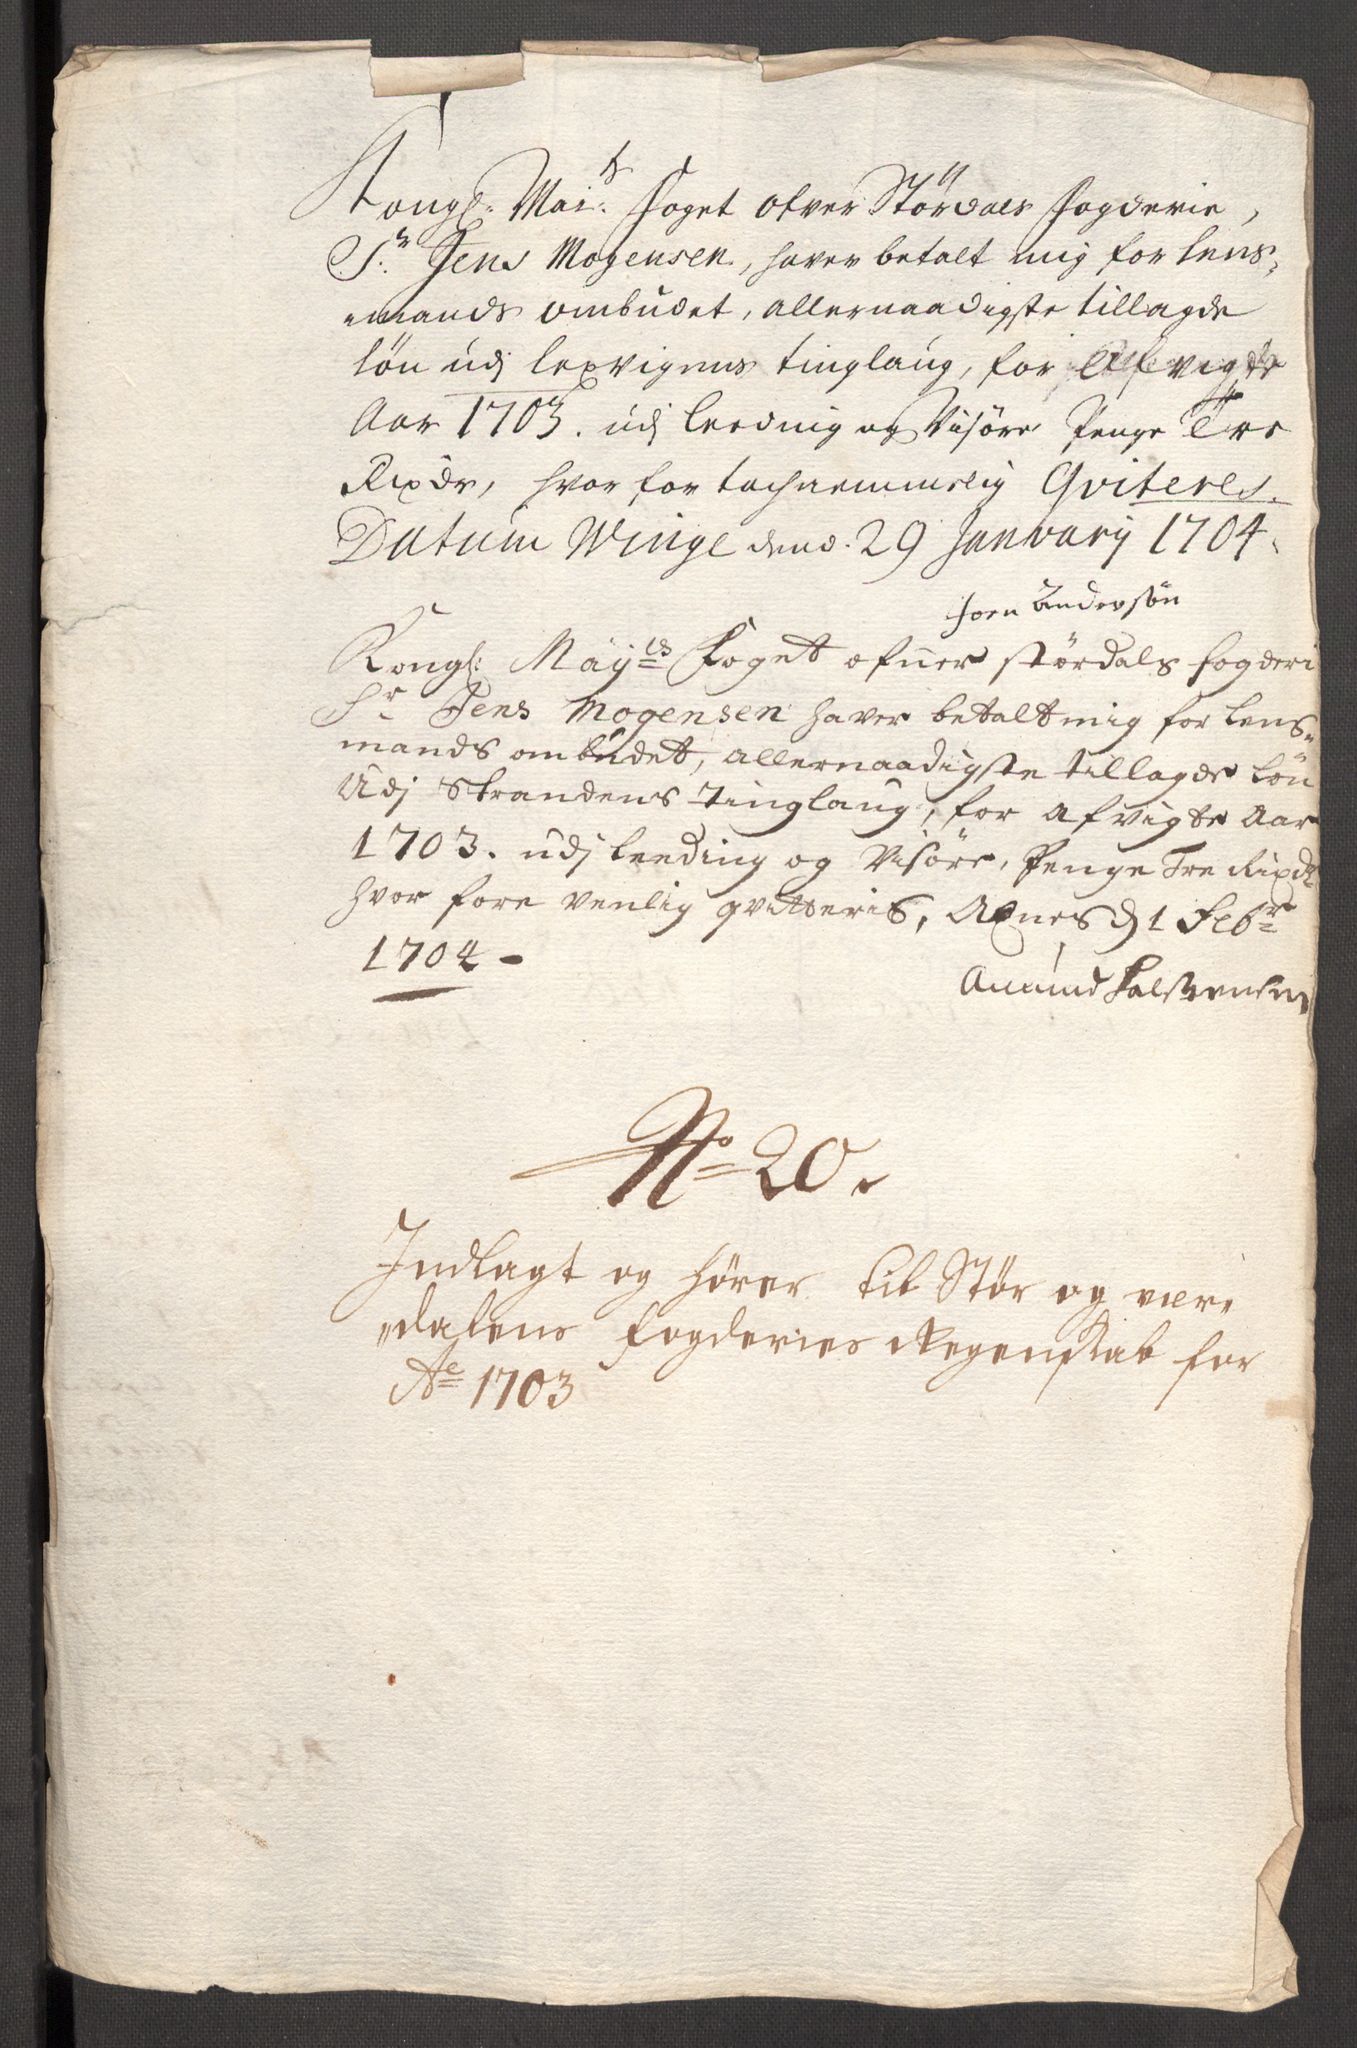 Kongl: Mai:ts foget ofver Stördals fogderie,
S:r Jens Mogensen, haver betalt mig for lens,,
mands ombudet, allernaadigste tillagde
løn udj lexvigens tinglaug, for afvigte
Aar 1703. udj leeding og Visøre Penge Tre
Rixdr, hvor for tachnemmelig Qviteres.
Datum Winge dend. 29 Janvarij 1704.
Joen Andersøn
Kongl: Mäy:ts Foget ofuer størdals fogderi
Sr Jens Mogensen haver betalt mig for Lens,,
mands ombudet, allernaadigste tillagde Løn
Udj Strandens Tinglaug, for afvigte Aar
1703. udj Leeding og Visøre, Penge Tre Rixdr
hvor fore venlig qvitteris, Axnes d 1 Febr
1704 -
Amund
No 20.
Indlagt og hører til Stör og vær,,
,,dahlens fogderies Regenskab for
Ao 1703